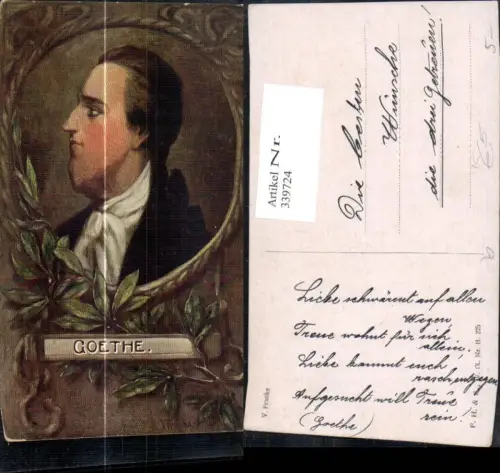 GOETHE.
Artikel Nr.
339724
Die besten
Wünsche
die drei Getreuen!
5-
V. Froitke
Liebe schwärmt auf allen
Wegen
Treue wohnt für sich
allein,
Liebe kommt euch
rasch entgegen
Aufgesucht will Treue
sein!
(Goethe)